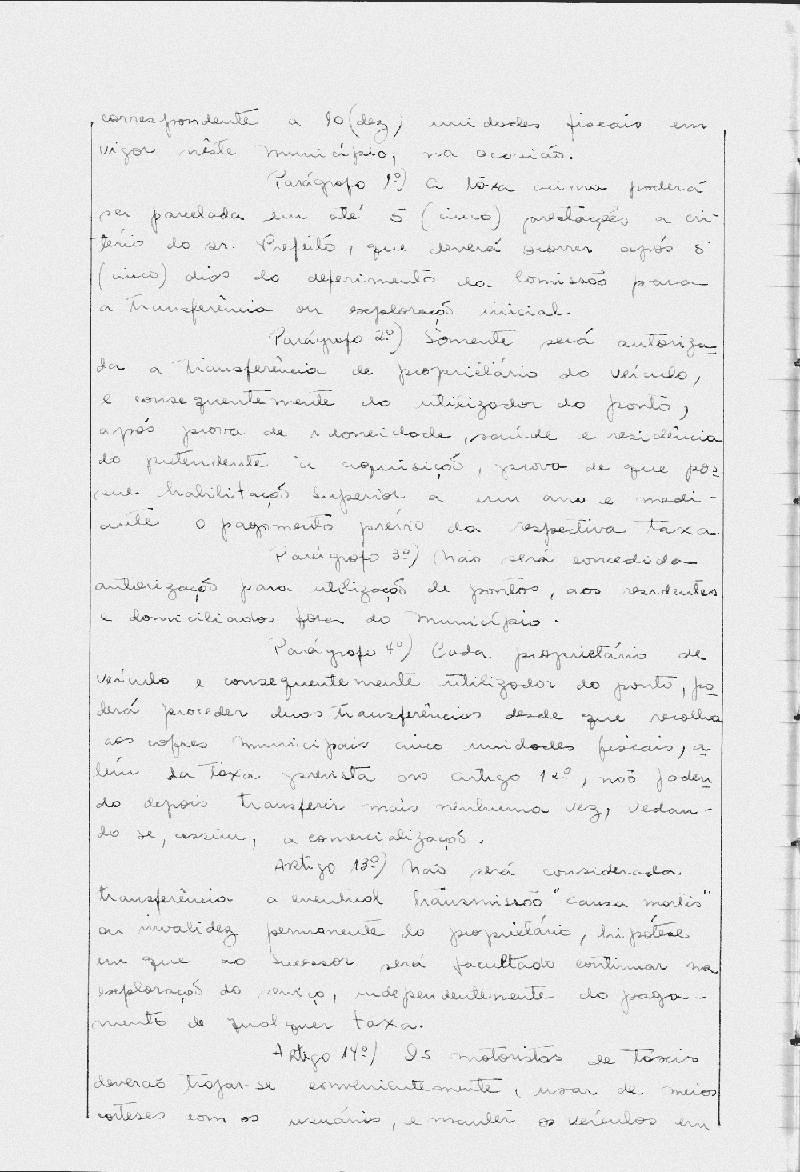 correspondente a 10 (dez) unidades fiscais em
vigor nêste município, na ocasião.
Parágrafo 1º) A taxa acima poderá
ser parcelada em até 5 (cinco) prestações, a cri-
tério do sr. Prefeito, que deverá ocorrer após 5
(cinco) dias do deferimento da Comissão para
a transferência ou exploração inicial.
Parágrafo 2º) Somente será autoriza-
da a transferência de proprietário do veículo,
e consequentemente do utilizador do ponto,
após prova de idoneidade, saúde e residência
do pretendente à aquisição, prova de que pos-
sue habilitação superior a um ano e medi-
ante o pagamento prévio da respectiva taxa.
Parágrafo 3º) Não será concedida
autorização para utilização de pontos, aos residentes
e domiciliados fora do município.
Parágrafo 4º) Cada proprietário de
veículo e consequentemente utilizador do ponto, po-
derá proceder duas transferências desde que recolha
aos cofres municipais cinco unidades fiscais, a-
lém da taxa prevista no artigo 12º, não poden-
do depois transferir mais nenhuma vez, vedan-
do se, assim, a comercialização.
Artigo 13º) Não será considerada
transferência a eventual transmissão "causa mortis"
ou invalidez permanente do proprietário, hipótese
em que ao sucessor será facultado continuar na
exploração do serviço, independentemente do paga-
mento de qualquer taxa.
Artigo 14º) Os motoristas de taxis
deverão trajar-se convenientemente, usar de meios
corteses com os usuários, e manter os veículos em